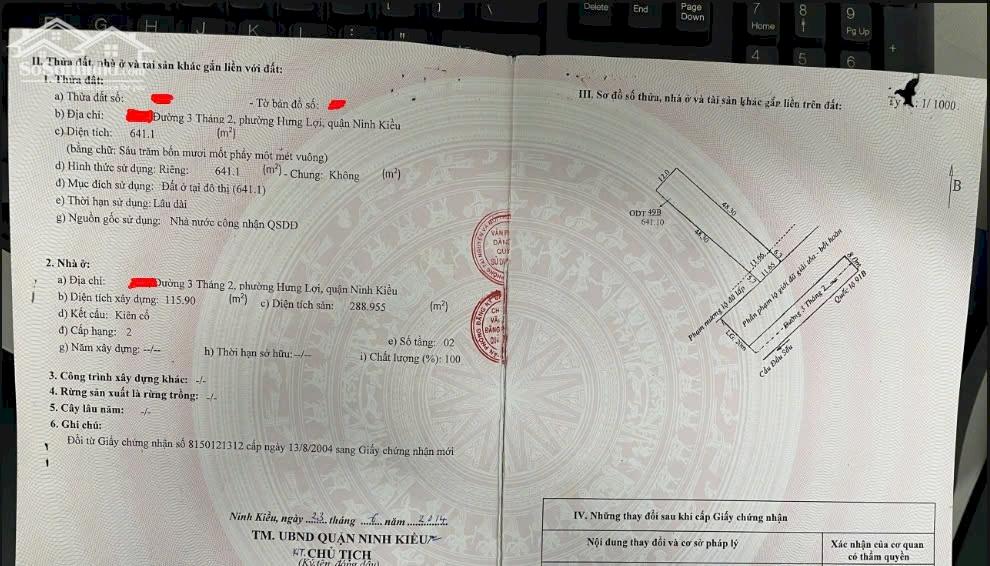 II. Thửa đất, nhà ở và tài sản khác gắn liền với đất:
1. Thửa đất:
a) Thửa đất số: - Tờ bản đồ số:
b) Địa chỉ: Đường 3 Tháng 2, phường Hưng Lợi, quận Ninh Kiều
c) Diện tích: 641.1 (m²)
(bằng chữ: Sáu trăm bốn mươi mốt phẩy một mét vuông)
d) Hình thức sử dụng: Riêng: 641.1 (m²) - Chung: Không (m²)
đ) Mục đích sử dụng: Đất ở tại đô thị (641.1)
e) Thời hạn sử dụng: Lâu dài
g) Nguồn gốc sử dụng: Nhà nước công nhận QSDĐ
2. Nhà ở:
a) Địa chỉ: Đường 3 Tháng 2, phường Hưng Lợi, quận Ninh Kiều
b) Diện tích xây dựng: 115.90 (m²) c) Diện tích sàn: 288.955 (m²)
d) Kết cấu: Kiên cố
đ) Cấp hạng: 2 e) Số tầng: 02
g) Năm xây dựng: --/-- h) Thời hạn sở hữu:--/-- i) Chất lượng (%): 100
3. Công trình xây dựng khác: -/-
4. Rừng sản xuất là rừng trồng: -/-
5. Cây lâu năm: -/-
6. Ghi chú:
Đổi từ Giấy chứng nhận số 8150121312 cấp ngày 13/8/2004 sang Giấy chứng nhận mới
Ninh Kiều, ngày 23 tháng 6 năm 2014
TM. UBND QUẬN NINH KIỀU
KT. CHỦ TỊCH
(Ký tên, đóng dấu)
III. Sơ đồ số thửa, nhà ở và tài sản khác gắn liền trên đất:
Tỷ : 1/ 1000
B
12.0
48.30
ODT 49B
641.10
48.30
11.66
11.65
Phạm mương lộ đã lấp
Phần phạm lộ giới đã giải tỏa - bồi hoàn
8.0m
Đường 3 Tháng 2
Quốc lộ 91B
LG: 20m
Cầu Đầu Sấu
IV. Những thay đổi sau khi cấp Giấy chứng nhận
Nội dung thay đổi và cơ sở pháp lý
Xác nhận của cơ quan
có thẩm quyền
Delete
End
Page
Down
7
Home
8
9
Pg Up
4
5
6
+
G
H
J
K
L